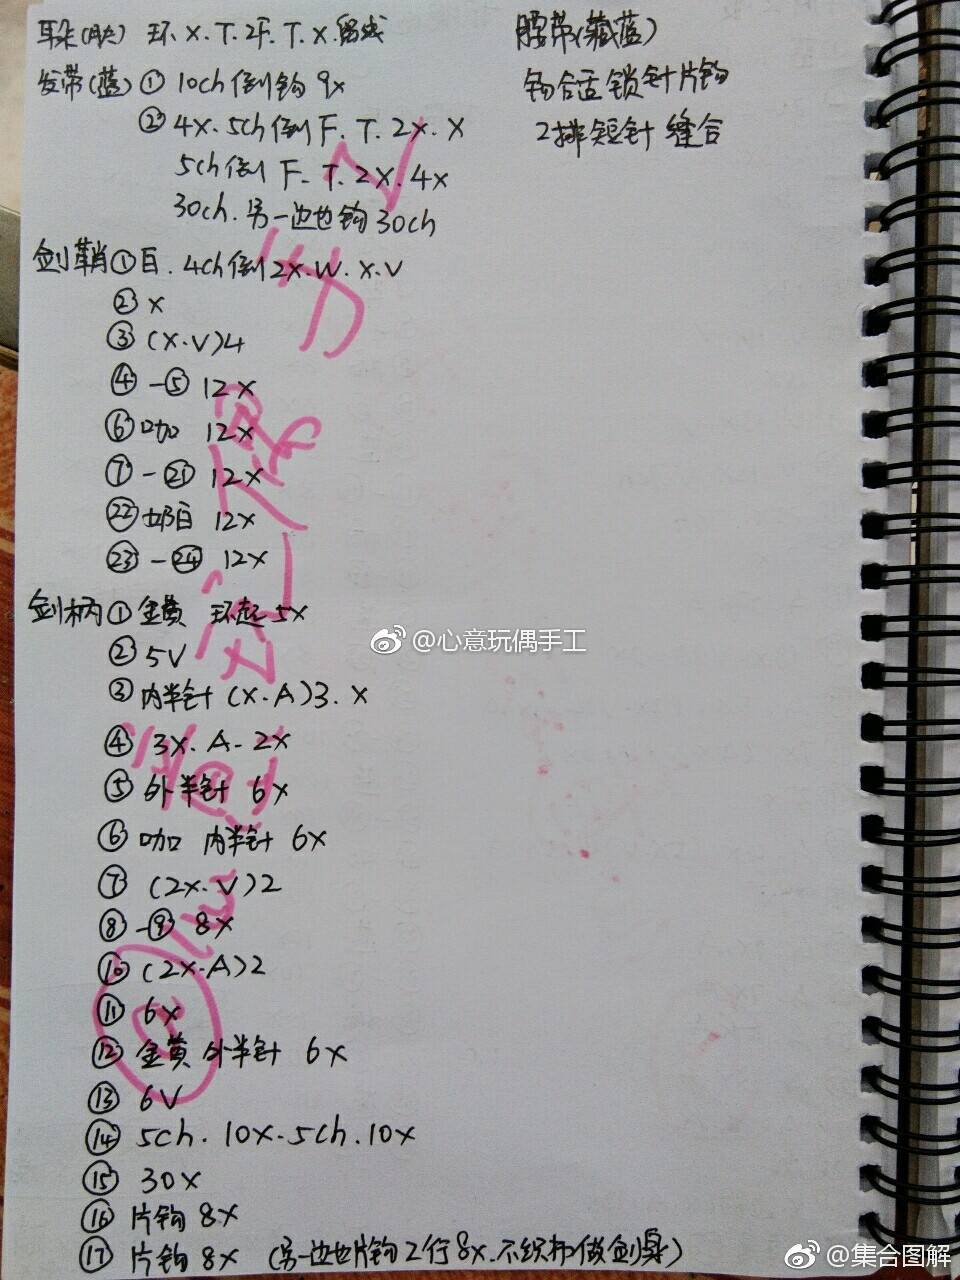 耳朵(肤) 环.X.T.2F.T.X.留线
发带(蓝)① 10ch倒钩 9X
② 4X.5ch倒 F.T.2X.X
5ch倒 F.T.2X.4X
30ch.另一边也钩30ch
腰带(藏蓝)
钩合适锁针片钩
2排短针 缝合
剑鞘①白.4ch倒2X.W.X.V
② X
③ (X.V)4
④-⑤ 12X
⑥咖 12X
⑦-㉑ 12X
㉒奶白 12X
㉓-㉔ 12X
剑柄①金黄 环起5X
② 5V
③内半针 (X.A)3.X
④ 3X.A.2X
⑤ 外半针 6X
⑥ 咖 内半针 6X
⑦ (2X.V)2
⑧-⑨ 8X
⑩ (2X.A)2
⑪ 6X
⑫ 金黄 外半针 6X
⑬ 6V
⑭ 5ch.10X.5ch.10X
⑮ 30X
⑯ 片钩 8X
⑰ 片钩 8X (另一边也片钩2行8X.不织布做剑身)
@心意玩偶手工
@集合图解